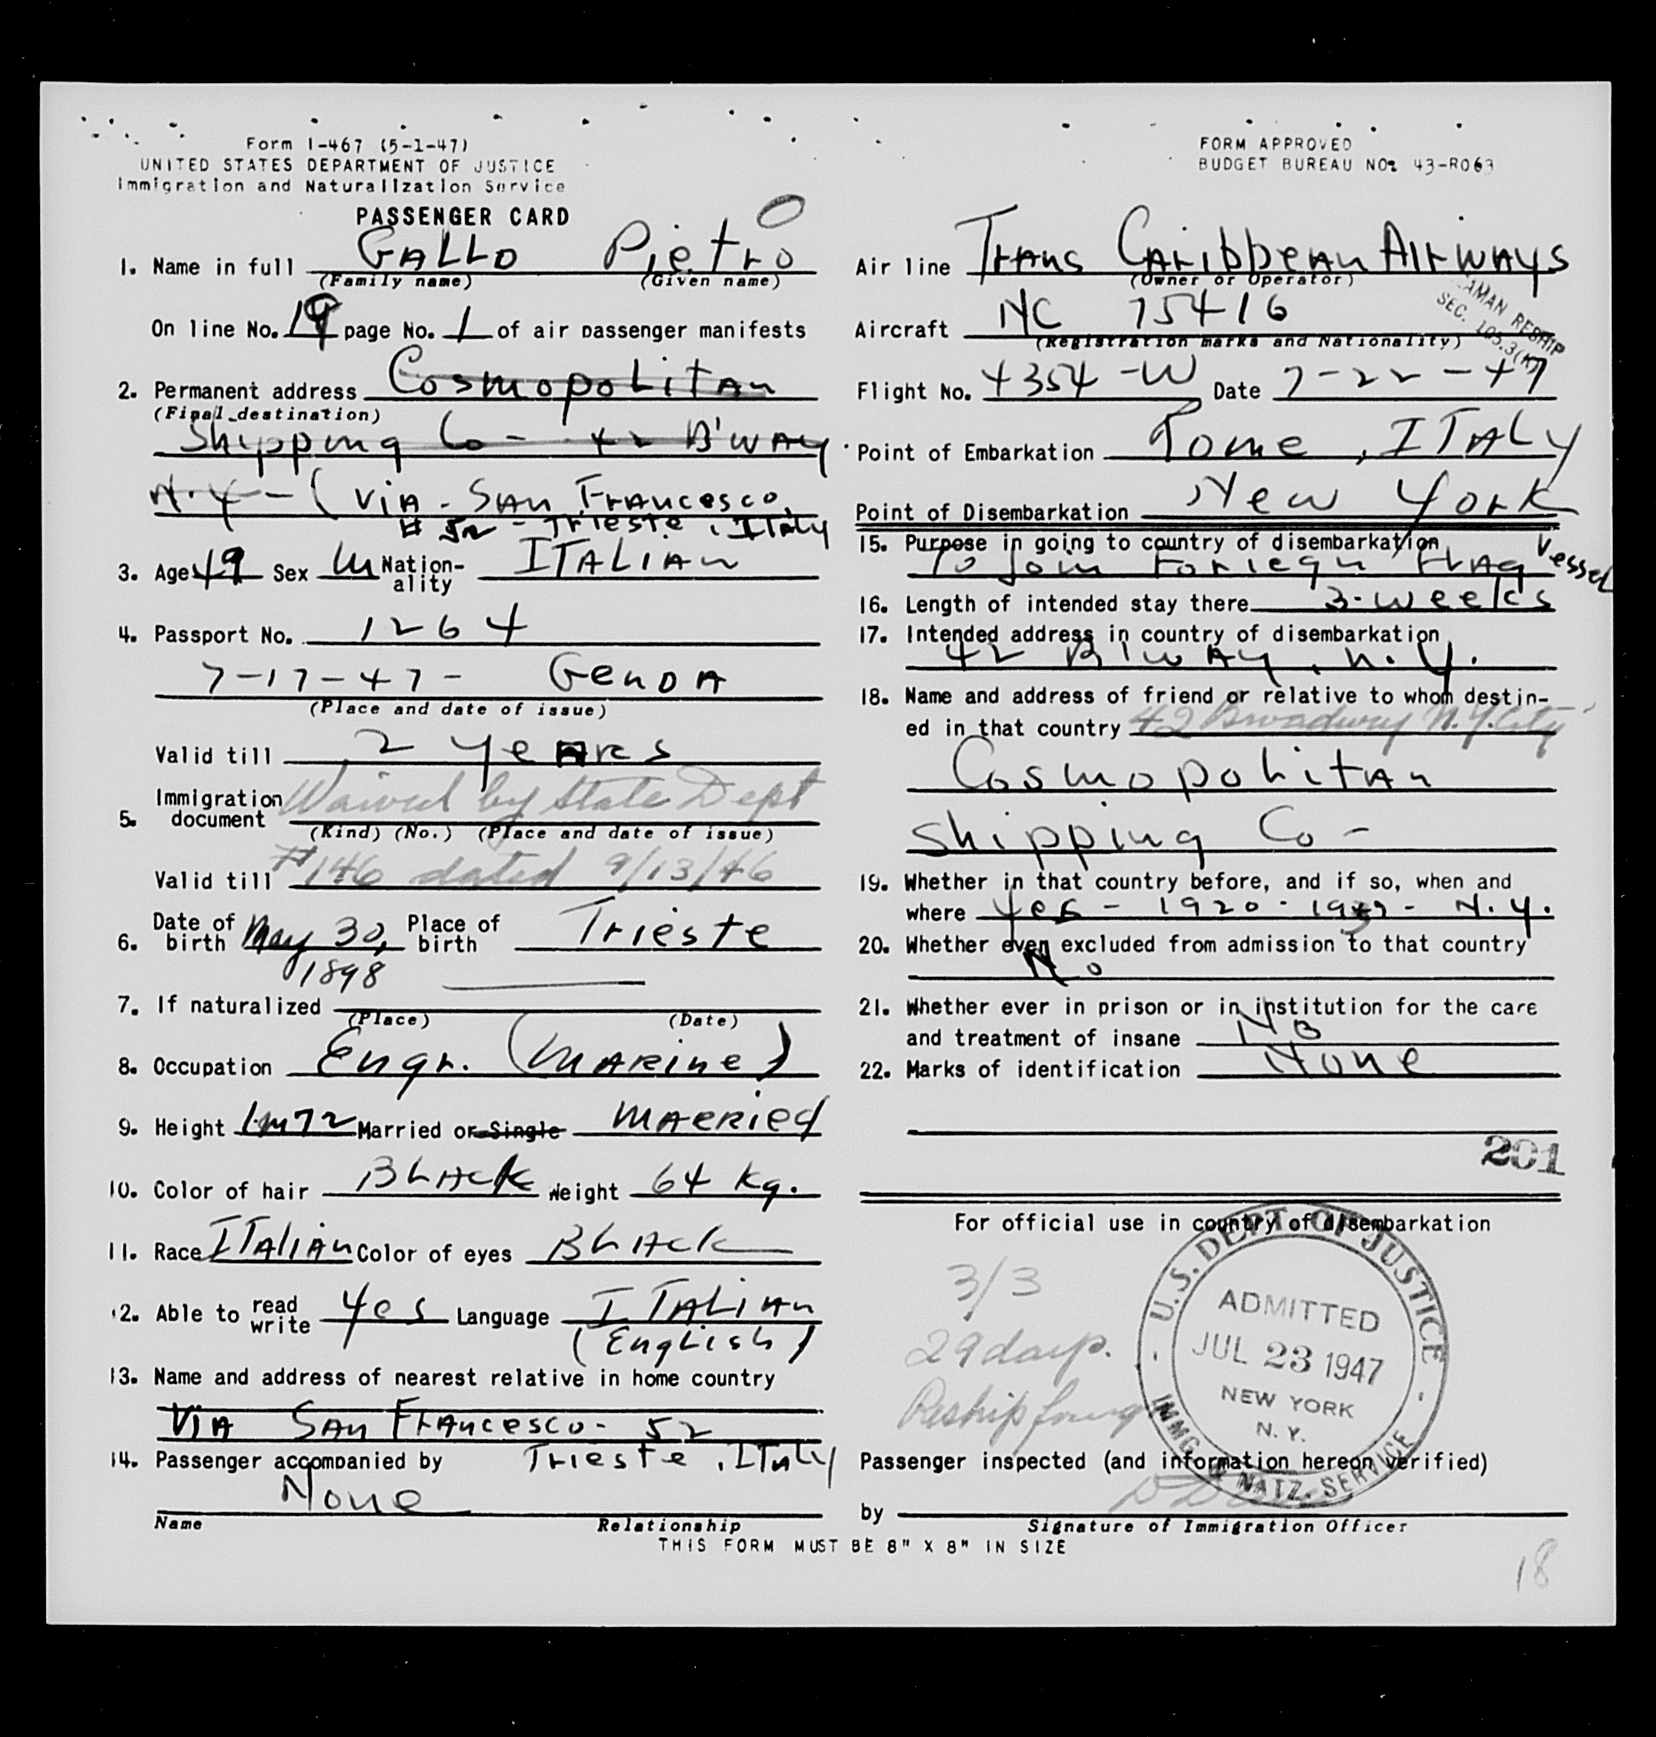 Form I-467 (5-1-47)
UNITED STATES DEPARTMENT OF JUSTICE
Immigration and Naturalization Service
PASSENGER CARD
1. Name in full GALLO Pietro
(Family name) (Given name)
On line No. 19 page No. 1 of air passenger manifests
2. Permanent address Cosmopolitan
(Final destination)
Shipping Co - 42 B'WAY
N.Y - ( Via - San Francesco,
# 52 - Trieste, Italy
3. Age 49 Sex M Nation-ality ITALIAN
4. Passport No. 1264
7-17-47 - Genoa
(Place and date of issue)
Valid till 2 years
5. Immigration document Waived by State Dept
(Kind) (No.) (Place and date of issue)
Valid till #146 dated 9/13/46
6. Date of birth May 30, 1898 Place of birth Trieste
7. If naturalized
(Place) (Date)
8. Occupation Engr. (Marine)
9. Height 1m72 Married or Single Married
10. Color of hair Black Weight 64 kg.
11. Race Italian Color of eyes Black
12. Able to read write Yes Language ITALIAN
(English)
13. Name and address of nearest relative in home country
VIA San Francesco - 52
Trieste, Italy
14. Passenger accompanied by
None
Name Relationship
THIS FORM MUST BE 8" X 8" IN SIZE
FORM APPROVED
BUDGET BUREAU NO. 43-R063
Air line Trans Caribbean Airways
(Owner or Operator)
Aircraft NC 75416
(Registration marks and Nationality)
SEAMAN RESHIP
SEC. 105.3(K)
Flight No. 4354-W Date 7-22-47
Point of Embarkation Rome, ITALY
Point of Disembarkation New York
15. Purpose in going to country of disembarkation
To Join Foriegn Flag Vessel
16. Length of intended stay there 3-weeks
17. Intended address in country of disembarkation
42 B'WAY, N.Y.
18. Name and address of friend or relative to whom destin-
ed in that country 42 Broadway N.Y. City
Cosmopolitan
Shipping Co -
19. Whether in that country before, and if so, when and
where Yes - 1920 - N.Y.
20. Whether even excluded from admission to that country
No
21. Whether ever in prison or in institution for the care
and treatment of insane No
22. Marks of identification None
201
For official use in country of disembarkation
3/3
29 days.
Reship foreign
U.S. DEPT. OF JUSTICE
ADMITTED
JUL 23 1947
NEW YORK
N.Y.
IMMG. & NATZ. SERVICE
Passenger inspected (and information hereon verified)
by
Signature of Immigration Officer
18